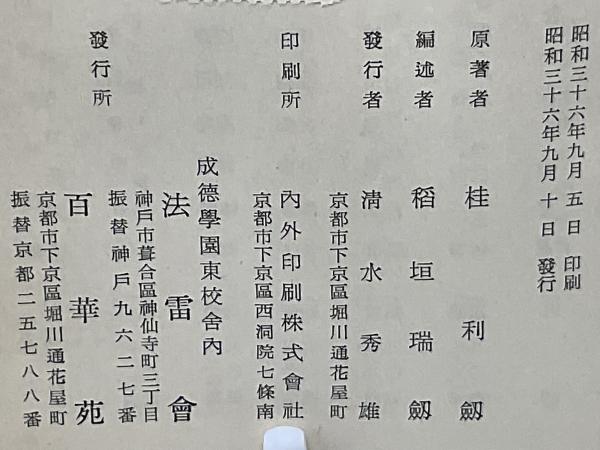 昭和三十六年九月五日 印刷
昭和三十六年九月十日 發行
原著者 桂利劔
編述者 稻垣瑞劔
發行者 淸水秀雄
京都市下京區堀川通花屋町
印刷所 內外印刷株式會社
京都市下京區西洞院七條南
發行所
成德學園東校舍內
法雷會
神戶市葺合區神仙寺町三丁目
振替神戶九六二七番
百華苑
京都市下京區堀川通花屋町
振替京都二五七八八番